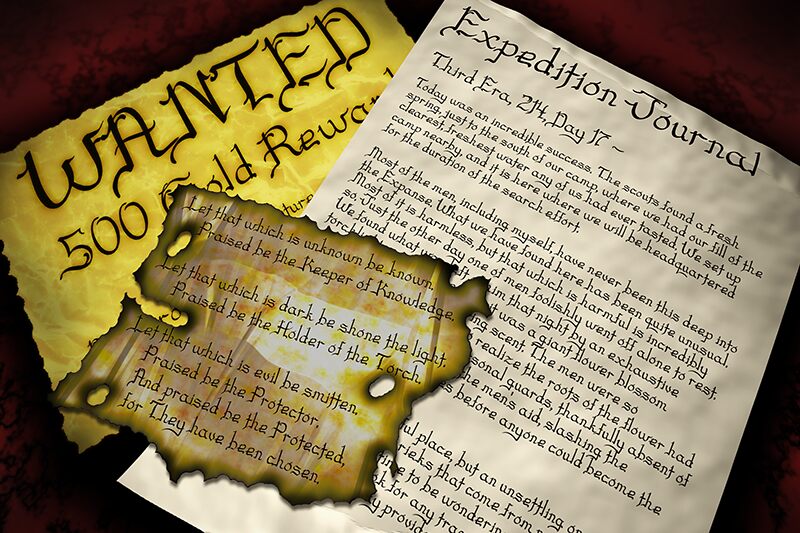 WANTED
500 Gold Reward
Let that which is unknown be known.
Praised be the Keeper of Knowledge.
Let that which is dark be shone the light,
Praised be the Holder of the Torch.
Let that which is evil be smitten.
Praised be the Protector.
And praised be the Protected,
for They have been chosen.
Expedition Journal
Third Era, 214, Day 17 ~
Today was an incredible success. The scouts found a fresh
spring, just to the south of our camp, where we had our fill of the
clearest, freshest water any of us had ever tasted. We set up
camp nearby and it is here where we will be headquartered
for the duration of the search effort.
Most of the men, including myself have never been this deep into
the Expanse. What we have found here has been quite unusual
Most of it is harmless, but that which is harmful is incredibly
so. Just the other day one of men foolishly went off alone to rest.
We found what that night by an exhaustive
was a giant flower blossom
scent. The men were so
realize the roots of the flower had
guards, thankfully absent of
the men's aid, slashing the
before anyone could become the
place, but an unsettling
that come from
to be
for any